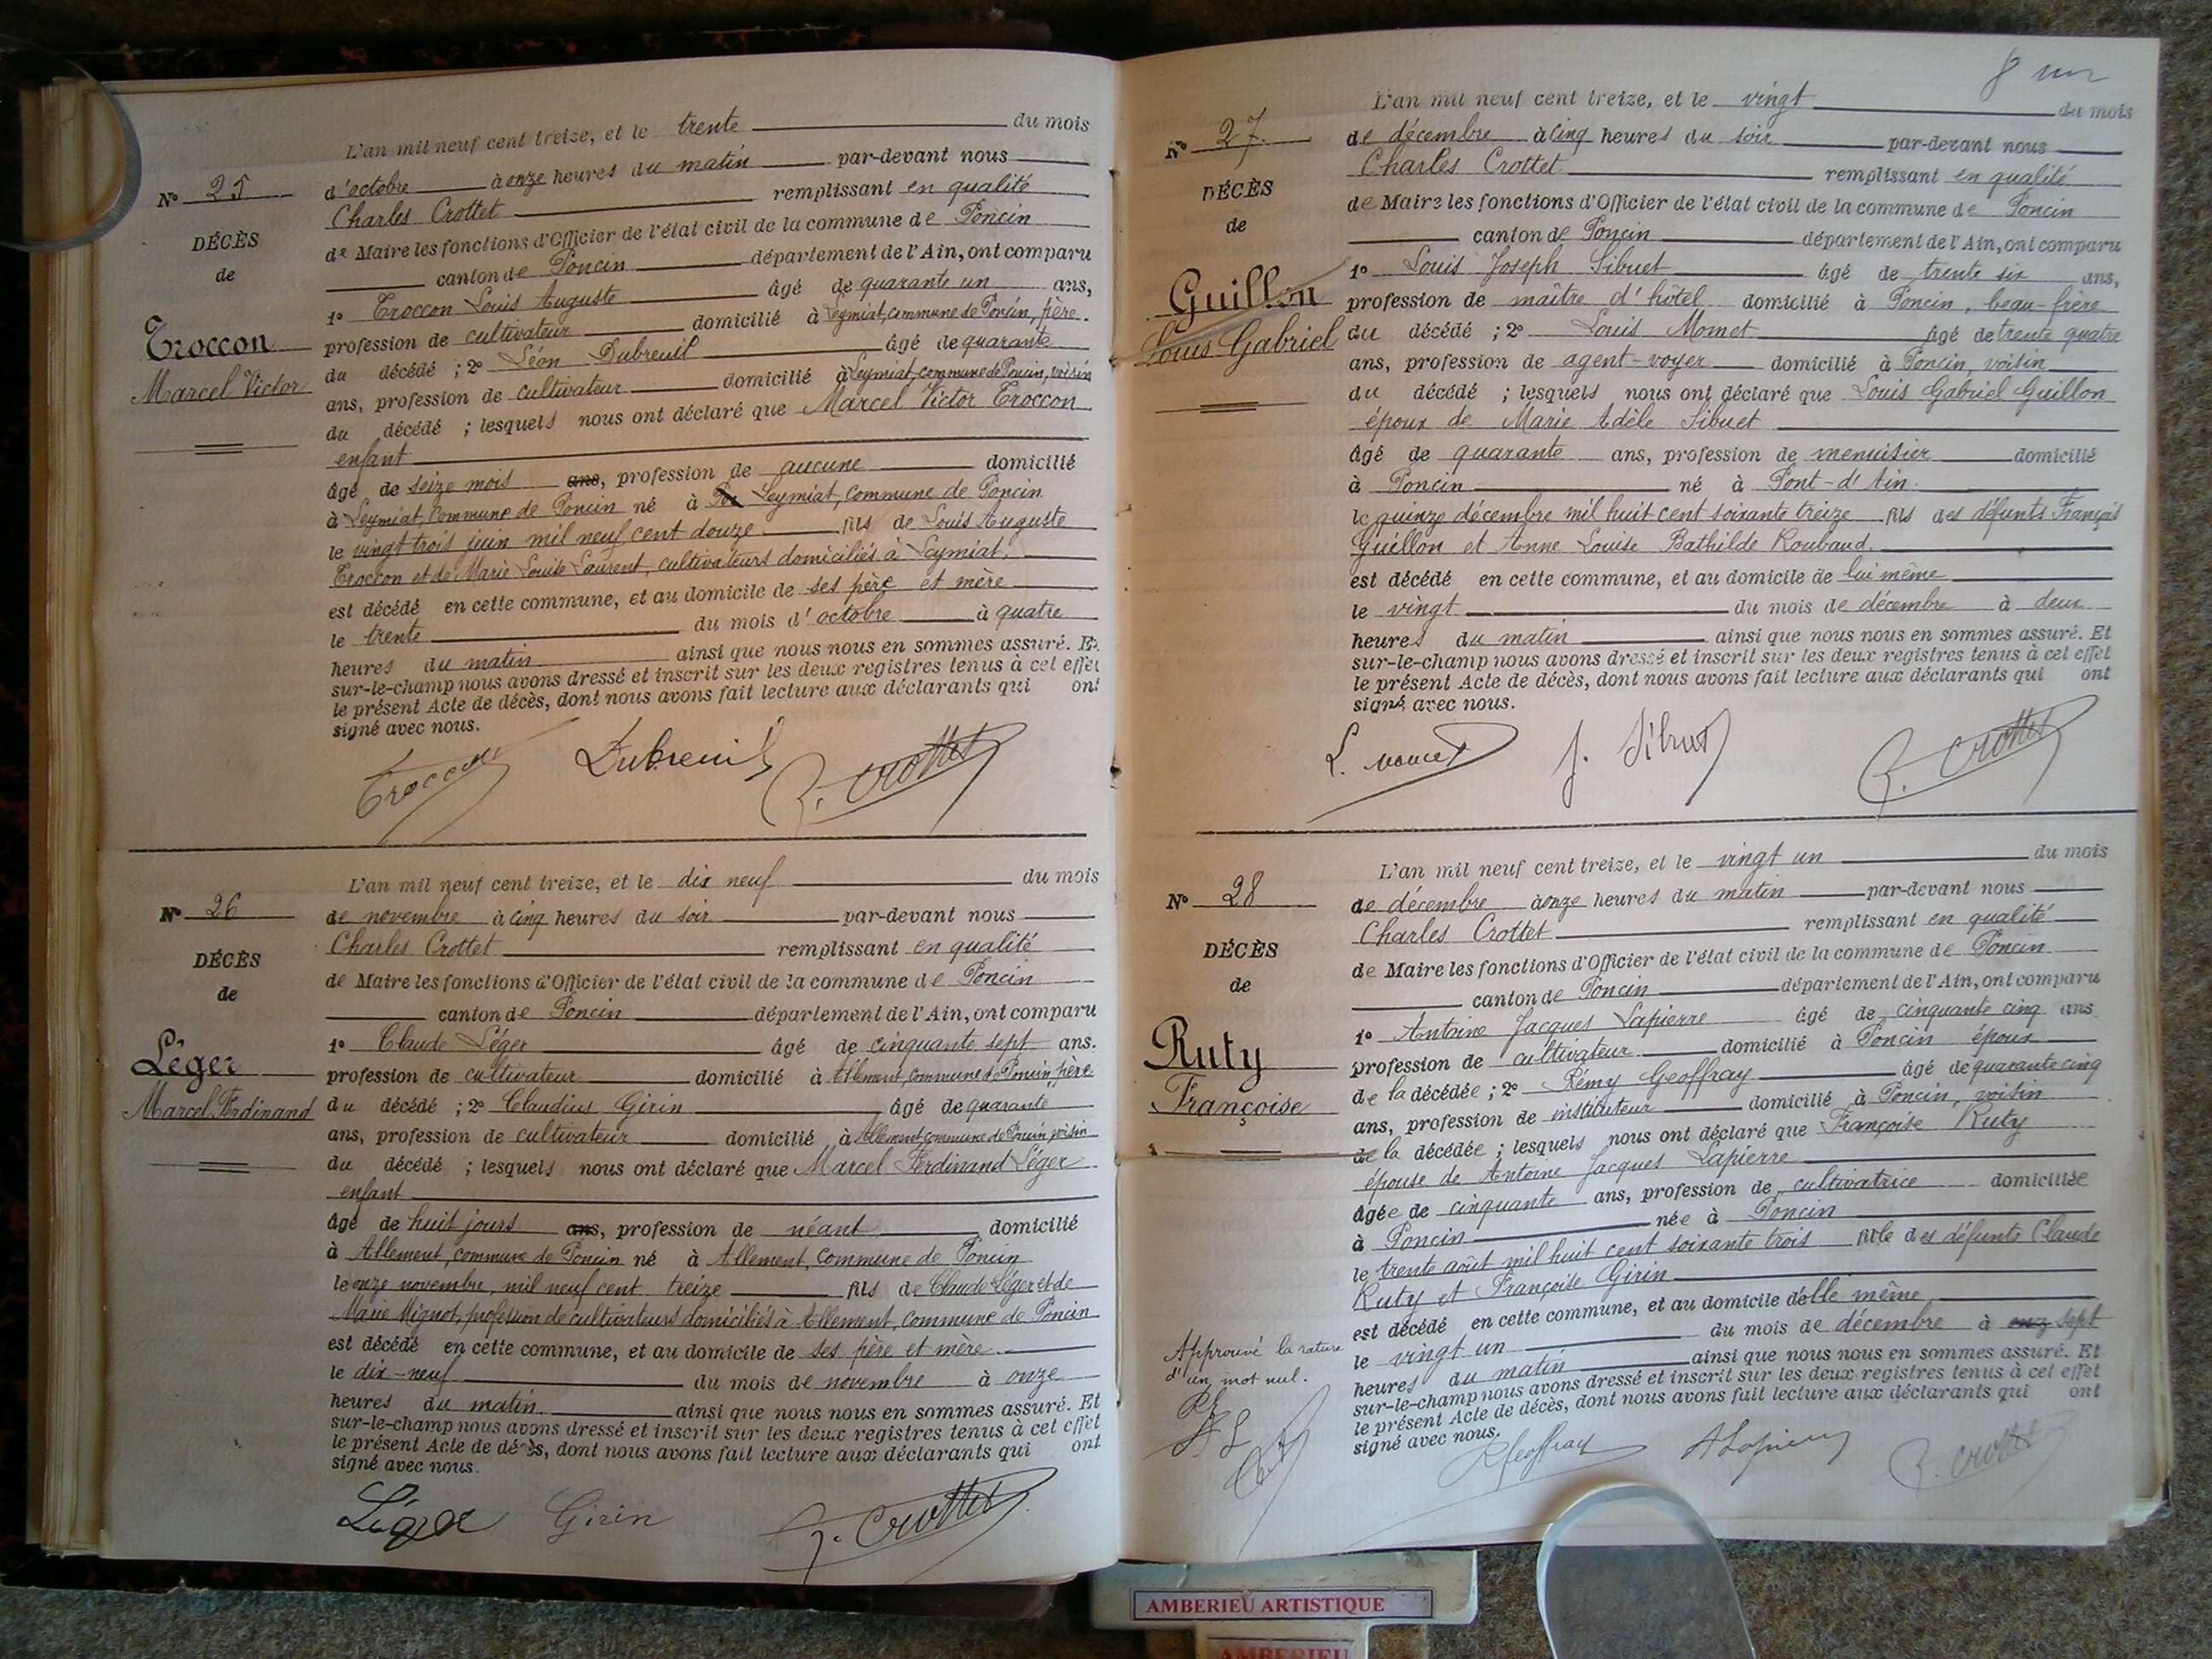 L'an mil neuf cent treize, et le trente du mois
N° 25
d'octobre à onze heures du matin par-devant nous
Charles Crottet remplissant en qualité
DÉCÈS
de Maire les fonctions d'Officier de l'état civil de la commune de Poncin
de
canton de Poncin département de l'Ain, ont comparu
1° Troccon Louis Auguste âgé de quarante un ans,
Troccon
profession de cultivateur domicilié à Leymiat, commune de Poncin, père
Marcel Victor
du décédé ; 2° Léon Dubreuil âgé de quarante
ans, profession de cultivateur domicilié à Leymiat, commune de Poncin, voisin
du décédé ; lesquels nous ont déclaré que Marcel Victor Troccon
enfant
âgé de seize mois ans, profession de aucune domicilié
à Leymiat, commune de Poncin né à Po Leymiat, commune de Poncin
le vingt trois juin mil neuf cent douze fils de Louis Auguste
Troccon et de Marie Louise Laurent, cultivateurs domiciliés à Leymiat.
est décédé en cette commune, et au domicile de ses père et mère
le trente du mois d'octobre à quatre
heures du matin ainsi que nous nous en sommes assuré. Et
sur-le-champ nous avons dressé et inscrit sur les deux registres tenus à cet effet
le présent Acte de décès, dont nous avons fait lecture aux déclarants qui ont
signé avec nous.
Troccon Dubreuil C. Crottet
L'an mil neuf cent treize, et le dix neuf du mois
N° 26
de novembre à cinq heures du soir par-devant nous
Charles Crottet remplissant en qualité
DÉCÈS
de Maire les fonctions d'Officier de l'état civil de la commune de Poncin
de
canton de Poncin département de l'Ain, ont comparu
1° Claude Léger âgé de cinquante sept ans.
Léger
profession de cultivateur domicilié à Allement, commune de Poncin, père
Marcel Ferdinand
du décédé ; 2° Claudius Girin âgé de quarante
ans, profession de cultivateur domicilié à Allement, commune de Poncin, voisin
du décédé ; lesquels nous ont déclaré que Marcel Ferdinand Léger
enfant
âgé de huit jours ans, profession de néant domicilié
à Allement, commune de Poncin né à Allement, commune de Poncin
le onze novembre, mil neuf cent treize fils de Claude Léger et de
Marie Mignot, profession de cultivateurs domiciliés à Allement, commune de Poncin
est décédé en cette commune, et au domicile de ses père et mère
le dix-neuf du mois de novembre à onze
heures du matin ainsi que nous nous en sommes assuré. Et
sur-le-champ nous avons dressé et inscrit sur les deux registres tenus à cet effet
le présent Acte de décès, dont nous avons fait lecture aux déclarants qui ont
signé avec nous.
Léger Girin C. Crottet
L'an mil neuf cent treize, et le vingt du mois
N° 27
de décembre à cinq heures du soir par-devant nous
Charles Crottet remplissant en qualité
DÉCÈS
de Maire les fonctions d'Officier de l'état civil de la commune de Poncin
de
canton de Poncin département de l'Ain, ont comparu
1° Louis Joseph Sibuet âgé de trente six ans,
Guillon
profession de maître d'hôtel domicilié à Poncin, beau-frère
Louis Gabriel
du décédé ; 2° Louis Momet âgé de trente quatre
ans, profession de agent-voyer domicilié à Poncin, voisin
du décédé ; lesquels nous ont déclaré que Louis Gabriel Guillon
époux de Marie Adèle Sibuet
âgé de quarante ans, profession de menuisier domicilié
à Poncin né à Pont-d'Ain.
le quinze décembre mil huit cent soixante treize fils des défunts François
Guillon et Anne Louise Bathilde Roubaud.
est décédé en cette commune, et au domicile de lui même
le vingt du mois de décembre à deux
heures du matin ainsi que nous nous en sommes assuré. Et
sur-le-champ nous avons dressé et inscrit sur les deux registres tenus à cet effet
le présent Acte de décès, dont nous avons fait lecture aux déclarants qui ont
signé avec nous.
J. Sibuet C. Crottet
L'an mil neuf cent treize, et le vingt un du mois
N° 28
de décembre à onze heures du matin par-devant nous
Charles Crottet remplissant en qualité
DÉCÈS
de Maire les fonctions d'Officier de l'état civil de la commune de Poncin
de
canton de Poncin département de l'Ain, ont comparu
1° Antoine Jacques Lapierre âgé de cinquante cinq ans
Ruty
profession de cultivateur domicilié à Poncin époux
Françoise
de la décédée ; 2° Rémy Geoffray âgé de quarante cinq
ans, profession de instituteur domicilié à Poncin, voisin
de la décédée ; lesquels nous ont déclaré que Françoise Ruty
épouse de Antoine Jacques Lapierre
âgée de cinquante ans, profession de cultivatrice domiciliée
à Poncin née à Poncin
le trente août mil huit cent soixante trois fille des défunts Claude
Ruty et Françoise Girin
est décédé en cette commune, et au domicile d'elle même
le vingt un du mois de décembre à onz sept
heures du matin ainsi que nous nous en sommes assuré. Et
sur-le-champ nous avons dressé et inscrit sur les deux registres tenus à cet effet
le présent Acte de décès, dont nous avons fait lecture aux déclarants qui ont
signé avec nous.
Approuvé la rature
d'un mot nul.
RGeoffray ALapierre C. Crottet
AMBERIEU ARTISTIQUE
AMBERIEU